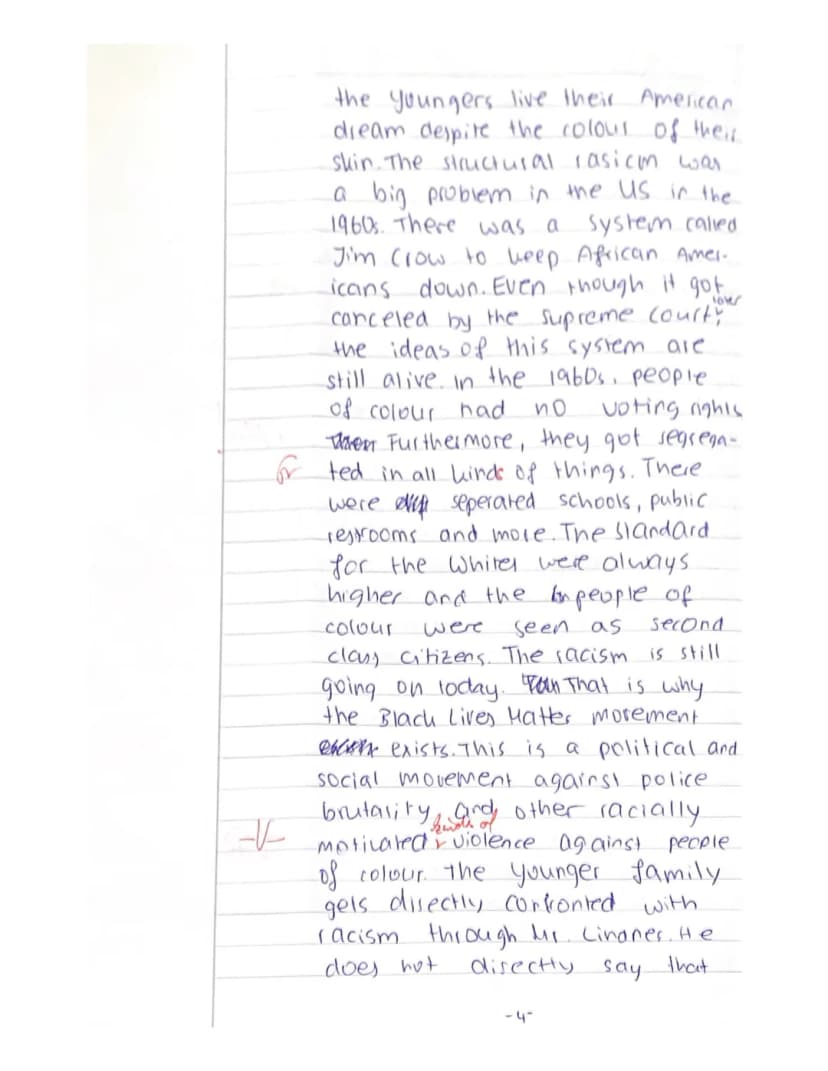 the Youngers live their American
dream despite the colour of their
skin. The structural rasicm was
a big problem in the US in the
1960s. There was a system called
Jim Crow to keep African Amer-
icans down. Even though it got
later
canceled by the supreme court,
the ideas of this system are
still alive. in the 1960s, people
of colour had no voting rights
Furthermore, they got segrega-
fr ted in all kinds of things. There
were seperated schools, public
restrooms and more. The standard
for the Whites were always
higher and the people of
colour were seen as second
class citizens. The racism is still
going on today. That is why
the Black Lives Matter movement
exists. This is a political and
social movement against police
brutality, and other racially
kinds of
-V- motivated violence against people
of colour. The younger family
gets directly confronted with
racism through Mr. Lindner. He
does not directly say that
-4-